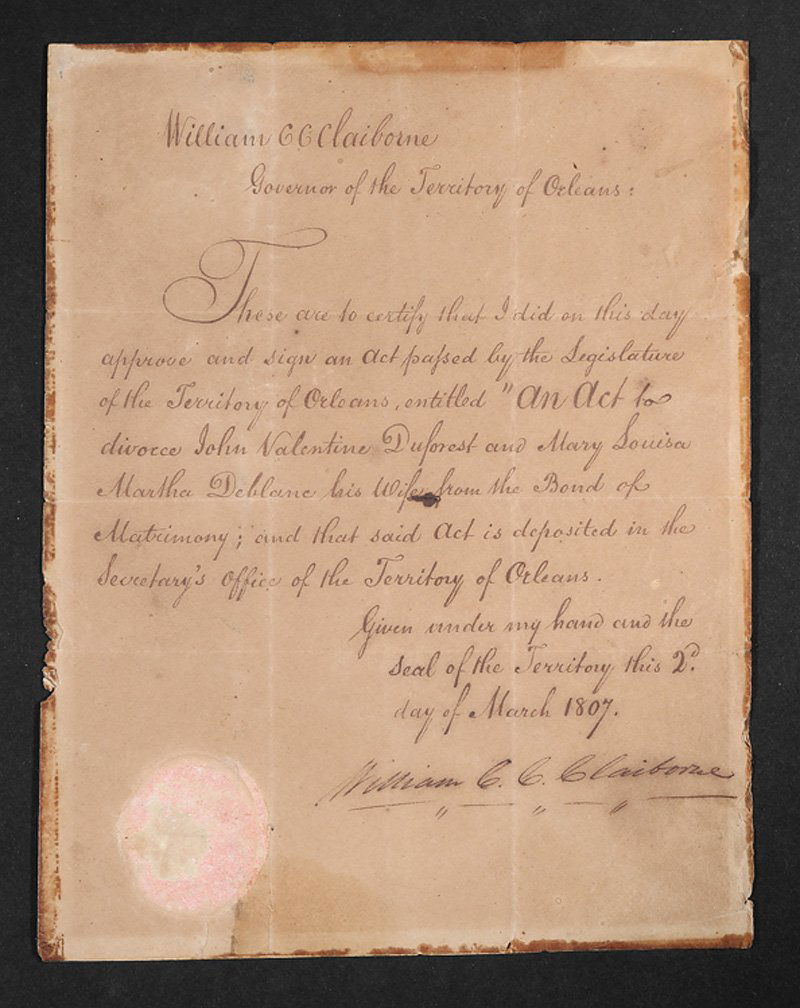 William CC Claiborne
Governor of the Territory of Orleans:
These are to certify that I did on this day
approve and sign an Act paſsed by the Legislature
of the Territory of Orleans, entitled "An Act to
divorce John Valentine Duforest and Mary Louisa
Martha Deblanc his Wife from the Bond of
Matrimony; and that said Act is deposited in the
Secretary's office of the Territory of Orleans.
Given under my hand and the
seal of the Territory this 2d.
day of March 1807.
William C. C. Claiborne